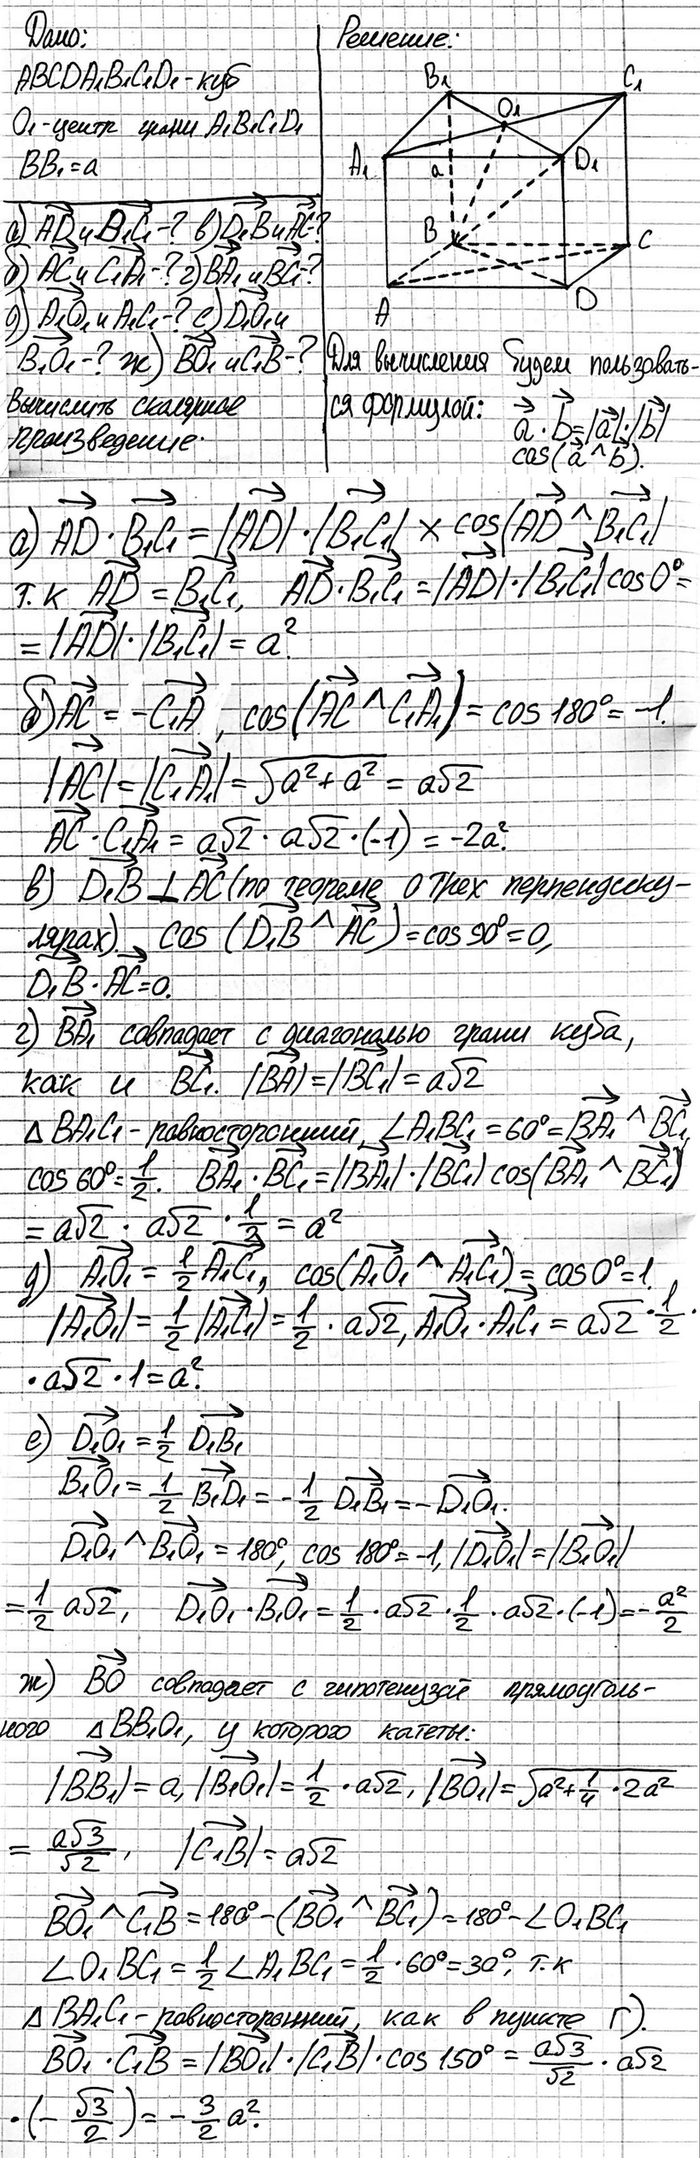 Дано:
ABCDA₁B₁C₁D₁-куб
O₁-центр грани A₁B₁C₁D₁
BB₁=a
а) AD и B₁C₁-? в) D₁B и AC-?
б) AC и C₁A₁-? г) BA₁ и BC₁-?
д) A₁O₁ и A₁C₁-? е) D₁O₁ и
B₁O₁-? ж) BO₁ и C₁B-?
Вычислить скалярное
произведение.
Решение:
B₁ C₁
O₁
A₁ D₁
a
B C
A D
Для вычисления будем пользовать-
ся формулой: a⃗ · b⃗ = |a⃗|·|b⃗|
cos(a⃗ ^ b⃗).
а) AD · B₁C₁ = |AD| · |B₁C₁| × cos(AD ^ B₁C₁|
т.к AD = B₁C₁, AD · B₁C₁ = |AD| · |B₁C₁| cos 0° =
= |AD| · |B₁C₁| = a².
б) AC = -C₁A , cos(AC ^ C₁A₁) = cos 180° = -1.
|AC| = |C₁A₁| = √a²+a² = a√2
AC · C₁A₁ = a√2 · a√2 · (-1) = -2a².
в) D₁B ⊥ AC (по теореме о трех перпендику-
лярах) cos (D₁B ^ AC) = cos 90° = 0,
D₁B · AC = 0.
г) BA₁ совпадает с диагональю грани куба,
как и BC₁. |BA| = |BC₁| = a√2
Δ BA₁C₁-равносторонний, ∠A₁BC₁ = 60° = BA₁ ^ BC₁,
cos 60° = 1/2. BA₁ · BC₁ = |BA₁| · |BC₁| cos(BA₁ ^ BC₁)
= a√2 · a√2 · 1/2 = a²
д) A₁O₁ = 1/2 A₁C₁, cos(A₁O₁ ^ A₁C₁) = cos 0° = 1
|A₁O₁| = 1/2 |A₁C₁| = 1/2 · a√2, A₁O₁ · A₁C₁ = a√2 · 1/2 ·
· a√2 · 1 = a².
е) D₁O₁ = 1/2 D₁B₁
B₁O₁ = 1/2 B₁D₁ = -1/2 D₁B₁ = -D₁O₁.
D₁O₁ ^ B₁O₁ = 180°, cos 180° = -1, |D₁O₁| = |B₁O₁|
= 1/2 a√2, D₁O₁ · B₁O₁ = 1/2 · a√2 · 1/2 · a√2 · (-1) = -a²/2
ж) BO совпадает с гипотенузой прямоуголь-
ного Δ BB₁O₁, у которого катеты:
|BB₁| = a, |B₁O₁| = 1/2 · a√2, |BO₁| = √a²+1/4 · 2a²
= a√3/√2, |C₁B| = a√2
BO₁ ^ C₁B = 180° - (BO₁ ^ BC₁) = 180° - ∠O₁BC₁
∠O₁BC₁ = 1/2 ∠A₁BC₁ = 1/2 · 60° = 30°, т.к
Δ BA₁C₁-равносторонний, как в пункте г).
BO₁ · C₁B = |BO₁| · |C₁B| · cos 150° = a√3/√2 · a√2
· (-√3/2) = -3/2 a².